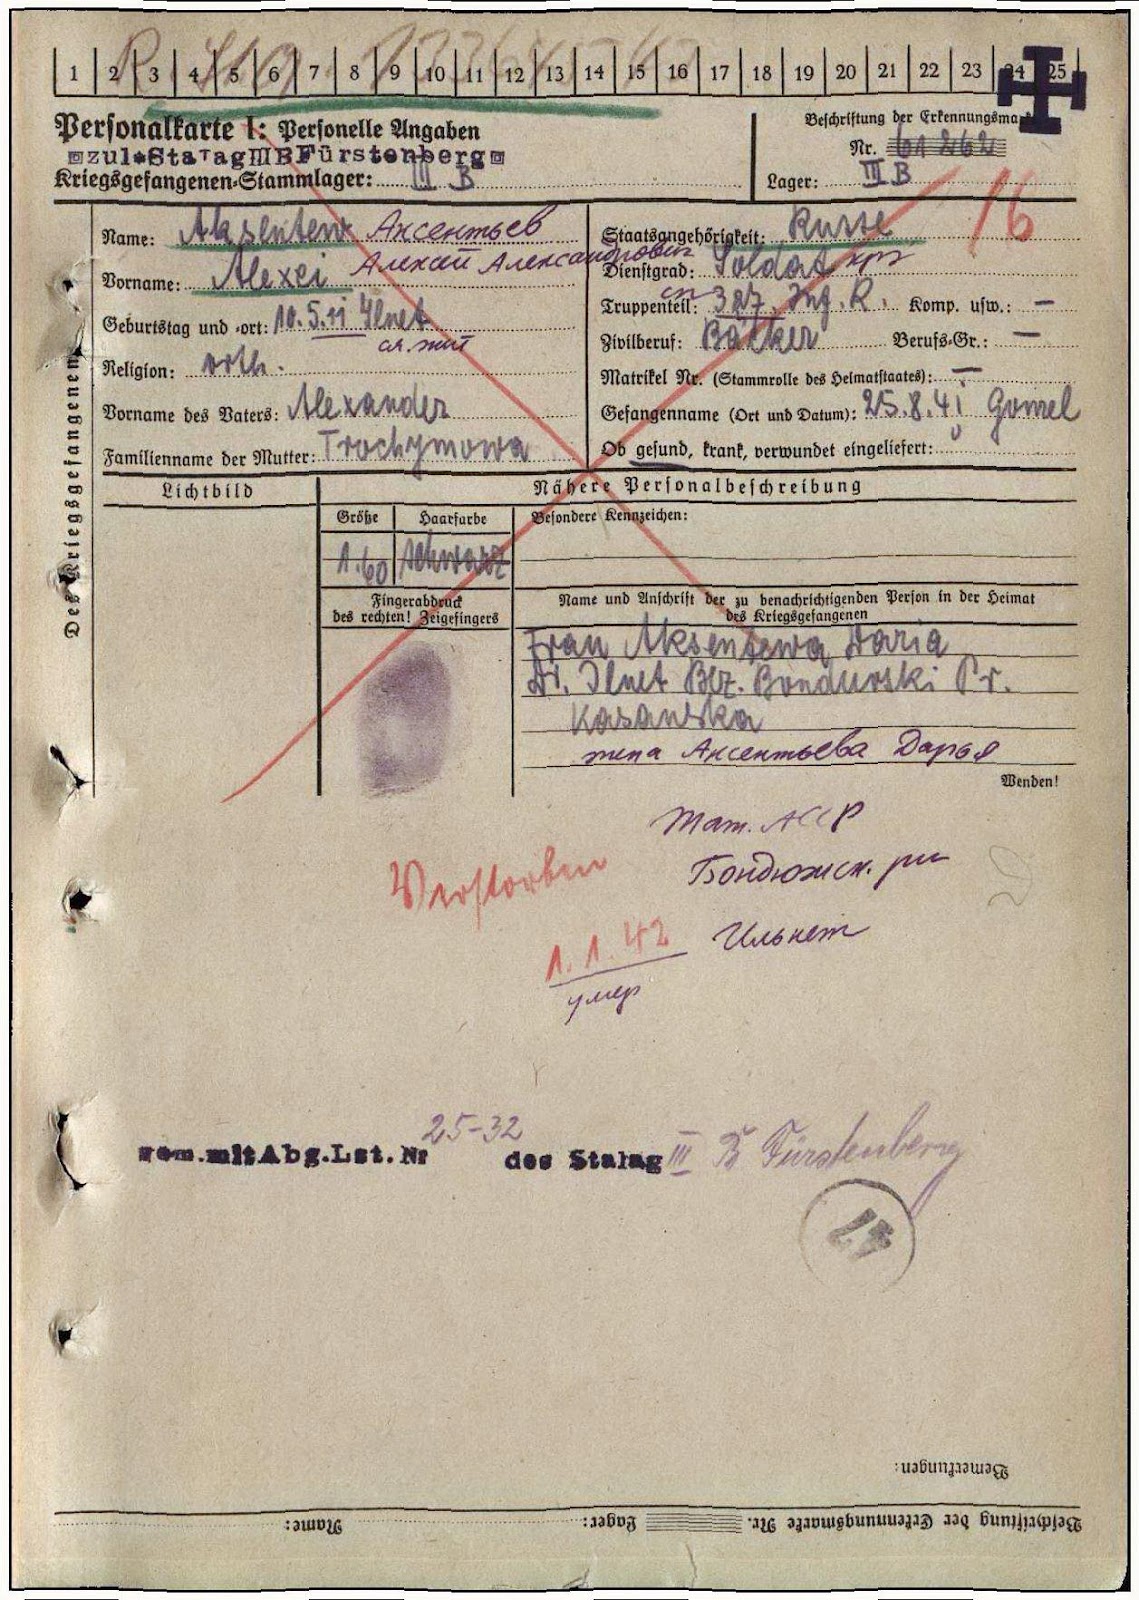 1 2 3 4 5 6 7 8 9 10 11 12 13 14 15 16 17 18 19 20 21 22 23 24 25
Personalkarte I: Personelle Angaben
Beschriftung der Erkennungsmarke
zul*StalagIIIBFürstenberg
Nr. 61262
Kriegsgefangenen-Stammlager: III B
Lager: III B
16
Des Kriegsgefangenen
Name: Aksentew Аксентьев
Staatsangehörigkeit: Russe
Алексей Александрович
Vorname: Alexei
Dienstgrad: Soldat кр
Geburtstag und -ort: 10.5.11 Ilnet
Truppenteil: сп 327. Inf. R. Komp. usw.: —
Zivilberuf: Bäcker Berufs-Gr.: —
Religion: orth.
Matrikel Nr. (Stammrolle des Heimatstaates): —
Vorname des Vaters: Alexander
Gefangenname (Ort und Datum): 25.8.41 Gomel
Familienname der Mutter: Trochymowa
Ob gesund, krank, verwundet eingeliefert:
Lichtbild
Nähere Personalbeschreibung
Größe Haarfarbe Besondere Kennzeichen:
1.60 schwarz
Fingerabdruck
des rechten! Zeigefingers
Name und Anschrift der zu benachrichtigenden Person in der Heimat
des Kriegsgefangenen
Frau Aksentewa Daria
Ilnet Bez. Bondurski Pr.
Kasanska
жена Аксентьева Дарья
Wenden!
Тат. АССР
Verstorben
Бондюжск. рн
1.1.42
Ильнет
умер
25-32
vom.mitAbg.Lst.Nr des Stalag III B Fürstenberg
Bemerkungen:
Beschriftung der Erkennungsmarke Nr. Lager: Name: